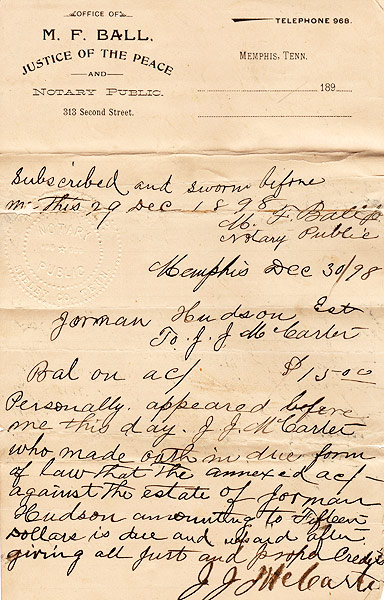 OFFICE OF
M. F. BALL,
JUSTICE OF THE PEACE
AND
NOTARY PUBLIC.
313 Second Street.
TELEPHONE 968.
MEMPHIS, TENN.
189
Subscribed and sworn before
me this 29 Dec 1898
M. F. Ball
Notary Public
Memphis Dec 30/98
Jorman Hudson Est
To J. J. McCarter
Bal on ac/ $15.00
Personally appeared before
me this day J. J. McCarter
who made oath in due form
of law that the annexed ac/-
against the estate of Jorman
Hudson amounting to Fifteen
Dollars is due and unpaid after
giving all Just and Credits
J J McCarter